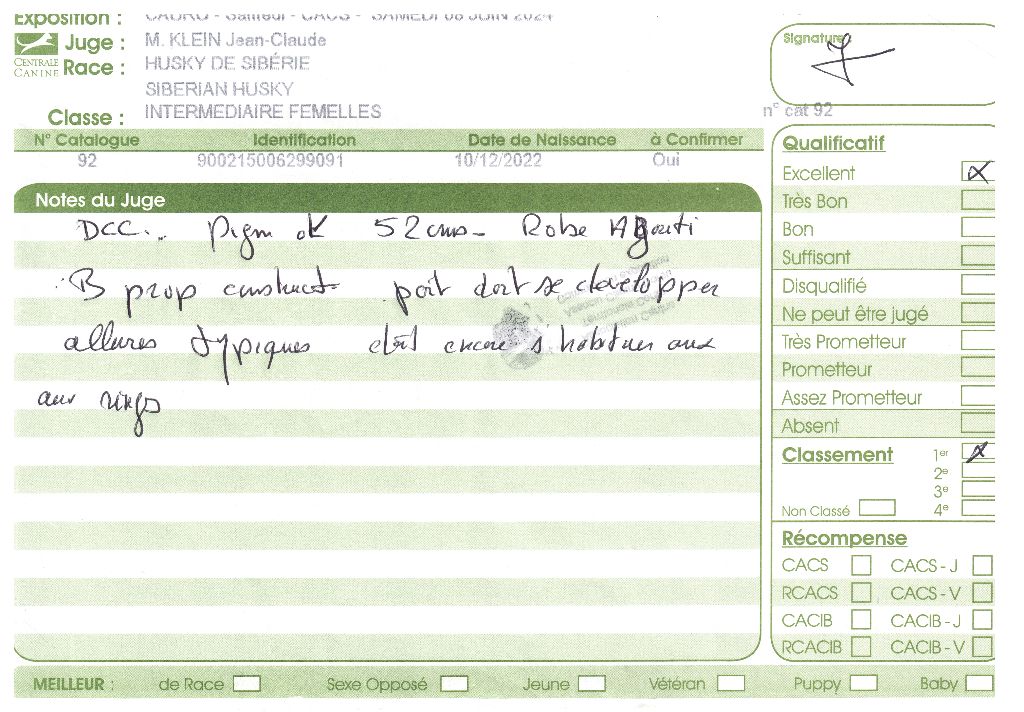 Exposition : CACS - SAMEDI 08 JUIN 2024
Juge : M. KLEIN Jean-Claude
CENTRALE CANINE
Race : HUSKY DE SIBÉRIE
SIBERIAN HUSKY
Classe : INTERMEDIAIRE FEMELLES
Signature :
n° cat 92
N° Catalogue Identification Date de Naissance à Confirmer
92 900215006299091 10/12/2022 Oui
Notes du Juge
DCC. Pigm ok 52 cms - Robe Agouti
B prop construct poit doit se developper
allures typiques doit encore s'habituer aux
aux rings
Qualificatif
Excellent X
Très Bon
Bon
Suffisant
Disqualifié
Ne peut être jugé
Très Prometteur
Prometteur
Assez Prometteur
Absent
Classement 1er X
2e
3e
Non Classé 4e
Récompense
CACS CACS - J
RCACS CACS - V
CACIB CACIB - J
RCACIB CACIB - V
MEILLEUR : de Race Sexe Opposé Jeune Vétéran Puppy Baby